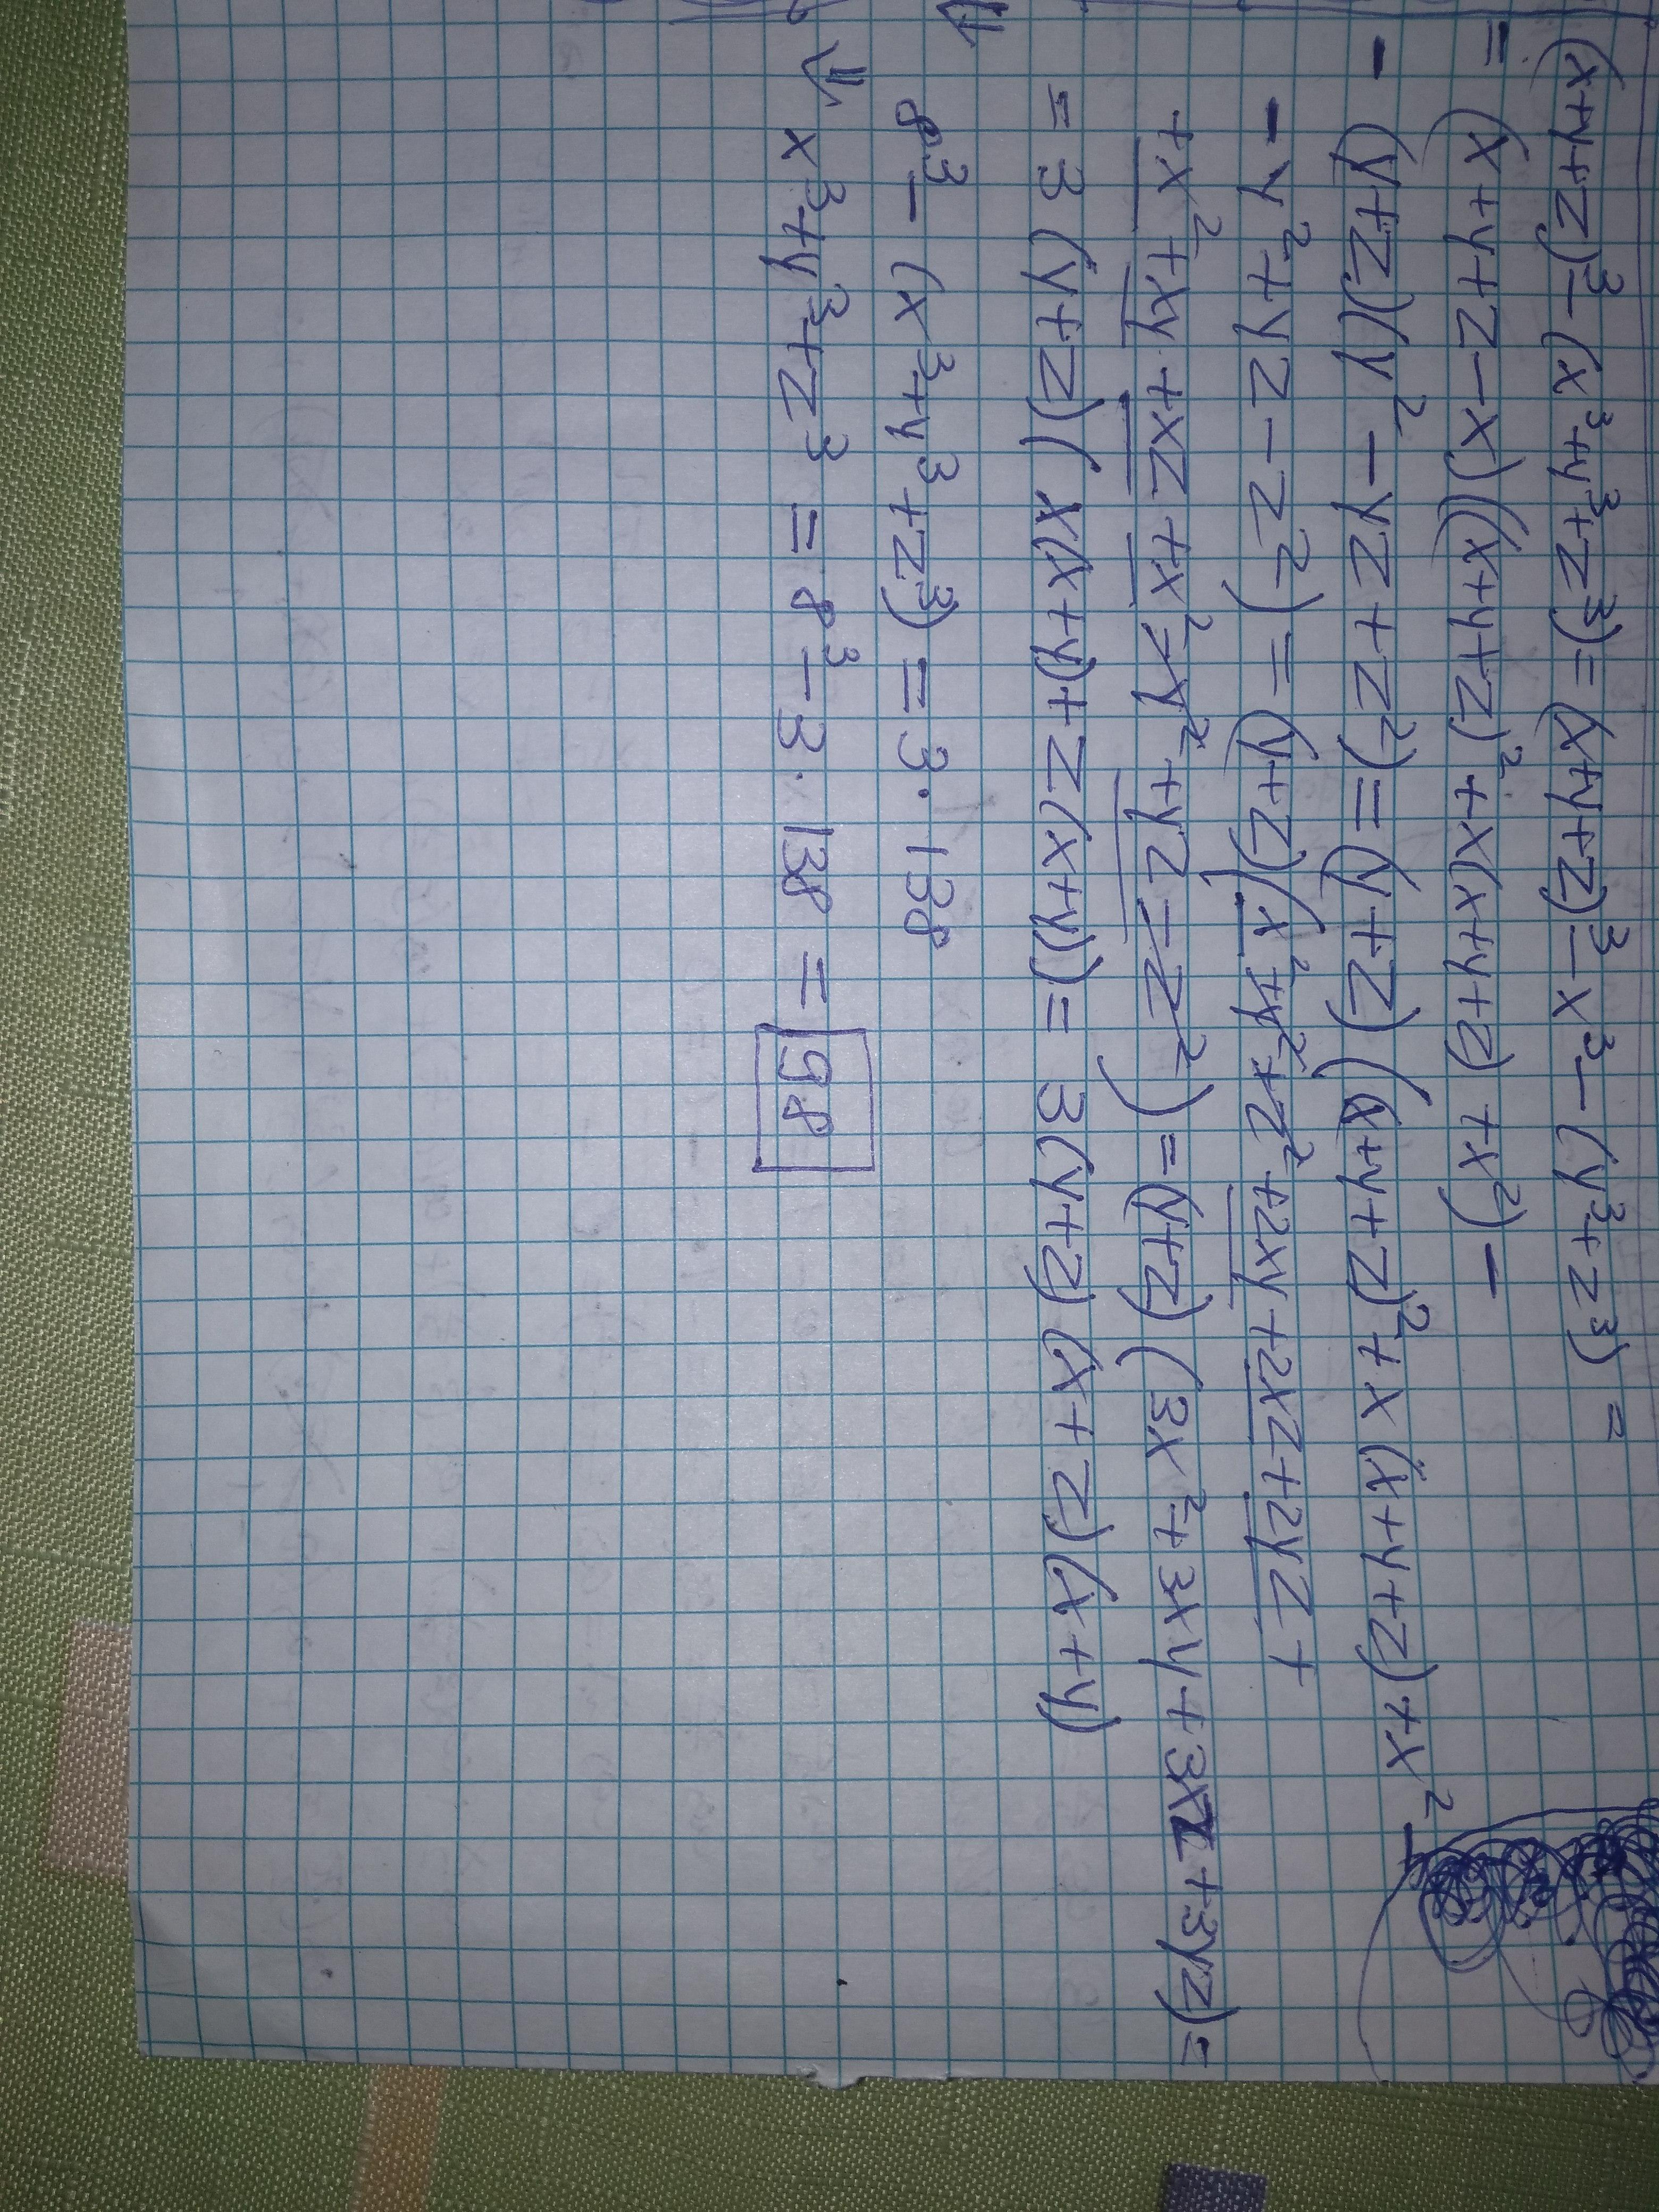 (x+y+z)³-(x³+y³+z³)=(x+y+z)³-x³-(y³+z³)=
=(x+y+z-x)((x+y+z)²+x(x+y+z)+x²)-
-(y+z)(y²-yz+z²)=(y+z)((x+y+z)²+x(x+y+z)+x²-
-y²+yz-z²)=(y+z)(x²+y²+z²+2xy+2xz+2yz+
+x²+xy+xz+x²-y²+yz-z²)=(y+z)(3x²+3xy+3xz+3yz)=
=3(y+z)(x(x+y)+z(x+y))=3(y+z)(x+z)(x+y)
⇓
8³-(x³+y³+z³)=3·138
⇓ x³+y³+z³=8³-3·138=98